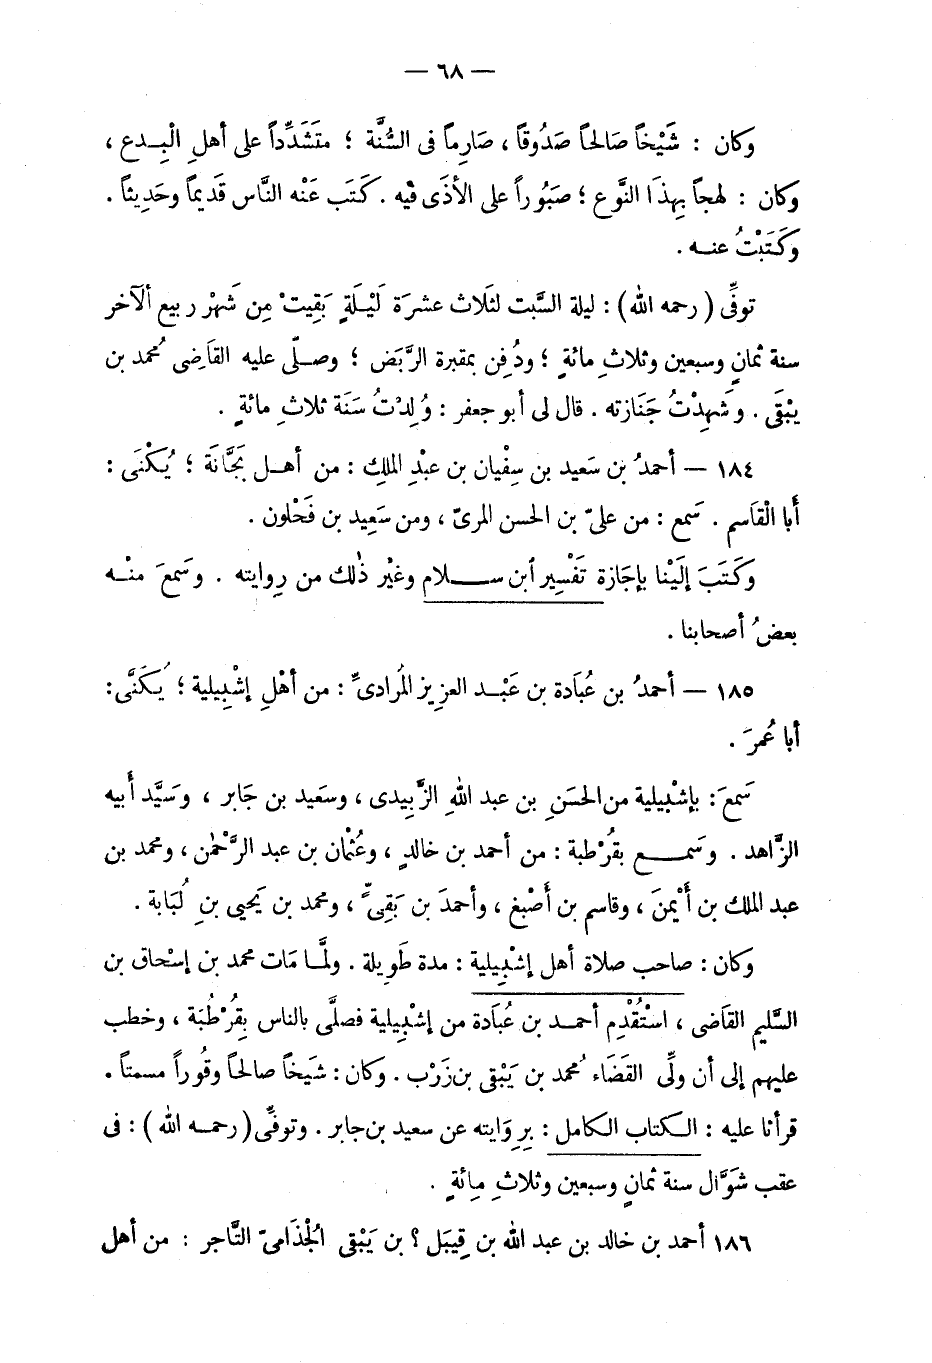 — ٦٨ —
وكان : شَيْخاً صَالحاً صَدُوقاً ، صَارِماً فى السُّنَّة ؛ متَشَدِّداً على أهلِ الْبِدع ،
وكان : لهجاً بِهذَا النَّوع ؛ صَبُوراً على الأذَى فيه . كَتَب عَنْه النَّاس قَدِيماً وحَدِيثاً .
وكَتَبْتُ عنه .
توفِّى ( رحمه الله ) : ليلة السَّبت لثَلاث عشرَة لَيْلَةٍ بَقِيتْ مِن شَهْر ربيع ألآخر
سنة ثمانٍ وسبعين وثلاثِ مائةٍ ؛ ودُفِن بمقبرة الرَّبَض ؛ وصلّى عليه القاَضِى مُحمد بن
يَبْقَى . وشَهِدْتُ جَنَازته . قال لى أبو جعفر : وُلِدْتُ سَنَة ثلاثِ مائةٍ .
١٨٤ — أحمدُ بن سَعيد بن سِفْيان بن عبْدِ الملِك : من أهل بَجَّانَة ؛ يُكْنَى :
أَبا الْقاَسم . سَمع : من علىّ بن الحسن المرىّ ، ومن سَعِيد بن فَحْلون .
وكَتَبَ إلَيْنا بإجَازة تَفْسِير أبن سلام وغيْر ذٰلك من رِوايته . وسَمعَ منْه
بعضُ أصحابنا .
١٨٥ — أحمدُ بن عُبَادة بن عَبْد العزيز المُرادىّ : من أهْلِ إشْبِيلية ؛ يُكَنَّى :
أبا عُمرَ .
سَمعَ : بإشْبيلية من الحسَنِ بن عبد اللهِ الزَّبِيدى ، وسَعيد بن جَابر ، وسَيَّد أبيه
الزَّاهد . وسَمع بقُرْطبة : من أحمد بن خالدٍ ، وعُثمْان بن عبد الرَّحمْٰن ، ومحمد بن
عبد الملك بن أَيْمنَ ، وقاسم بن أَصْبغ ، وأحمدَ بن بَقِىٍّ ، ومحمد بن يَحيى بنِ لُبَابة .
وكان : صاحب صلاة أهل إشْبِيلية : مدة طَوِيلة . ولمَّا مَات محمد بن إسْحاق بن
السَّليم القاَضى ، اسْتُقْدِم أحمد بن عُبَادة من إشْبِيلية فصلَّى بالناس بِقُرْطُبَة ، وخطب
عليهم إلى أن ولِّى القَضَاء مُحمد بن يَبْقى بن زَرْب . وكان : شَيخاً صالحاً وقُوراً مسمتاً .
قرأنا عليه : الكتاب الكامل : بِرِوَايته عن سعيد بن جابر . وتوفِّى ( رحمه الله ) : فى
عقب شَوَّال سنة ثمانٍ وسبعين وثلاثِ مِائةٍ .
١٨٦ أحمد بن خالد بن عبد الله بن قِيبَل ؟ بن يَبْقى الجُذَامىّ التَّاجر : من أهل